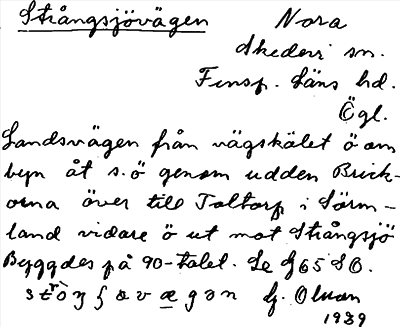 Strångsjövägen
Nora
Skedevi sn.
Finsp. läns hd.
Ögl.
Landsvägen från vägskälet ö om
byn åt s.ö genom udden Brick-
orna över till Taltorp i Sörm-
land vidare ö ut mot Strångsjö
Byggdes på 90-talet. Se J65 SO.
1939